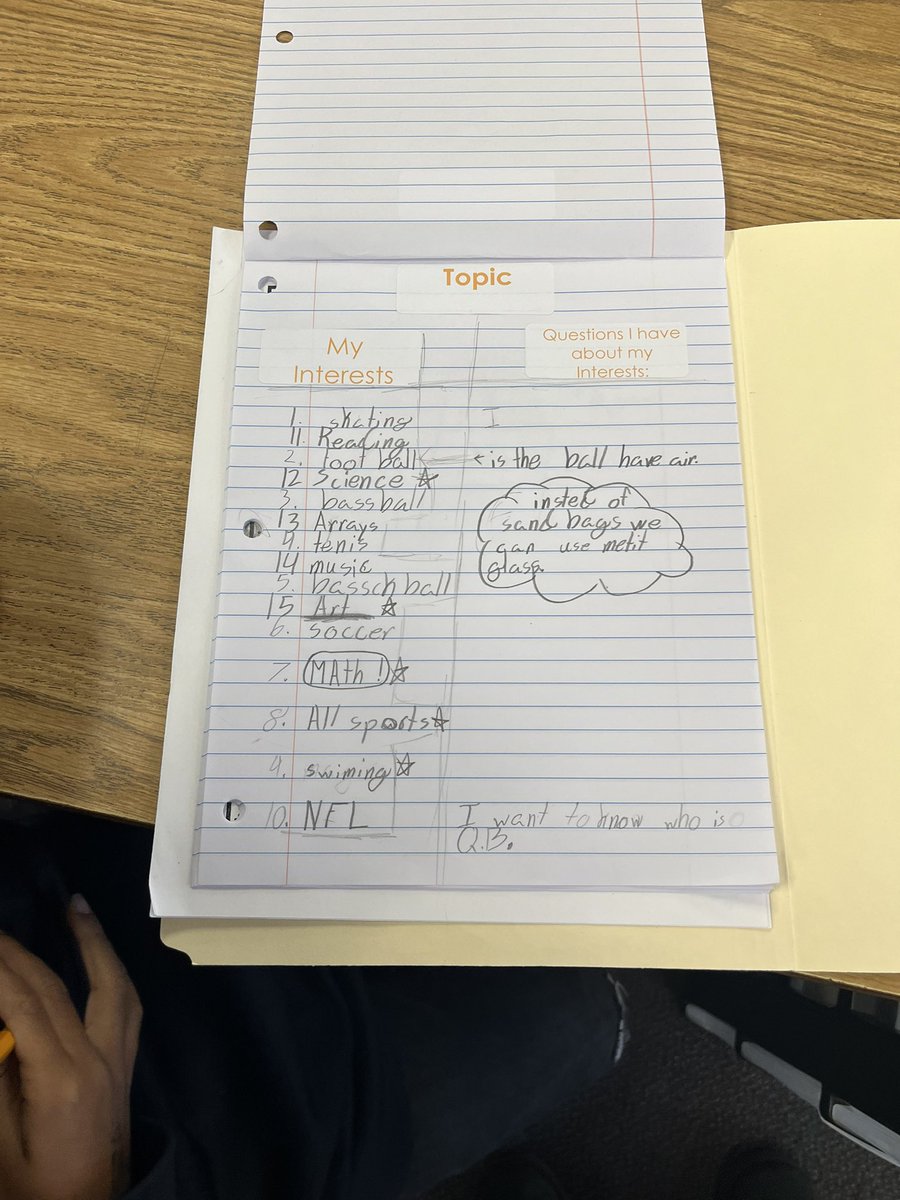 Topic
My
Interests
Questions I have
about my
Interests:
1. skating
I
11. Reading
2. foot ball
is the ball have air.
12 Science
3. bassball
insted of
sand bags we
can use metit
glass.
13 Arrays
4. tenis
14 music
5. bassckball
15 Art
6. soccer
7. MAth!
8. All sports
9. swiming
10. NFL
I want to know who is
Q.B.